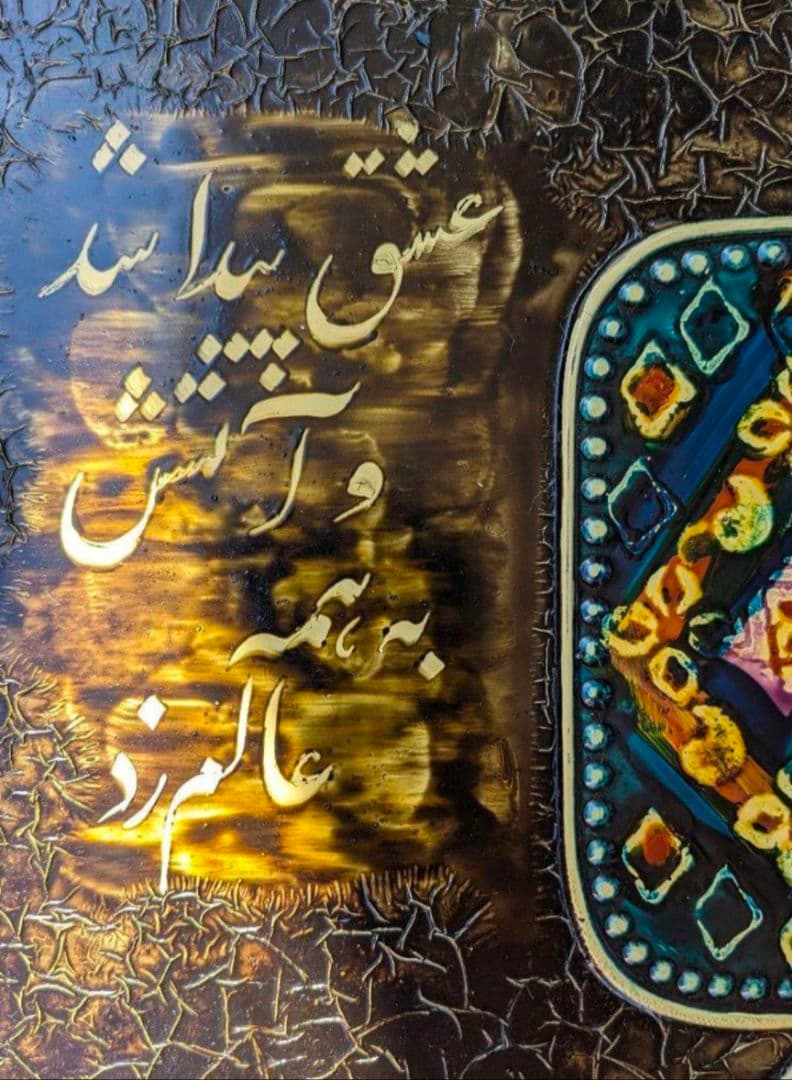 عشق پیدا شد
و آتش
به همه
عالم زد